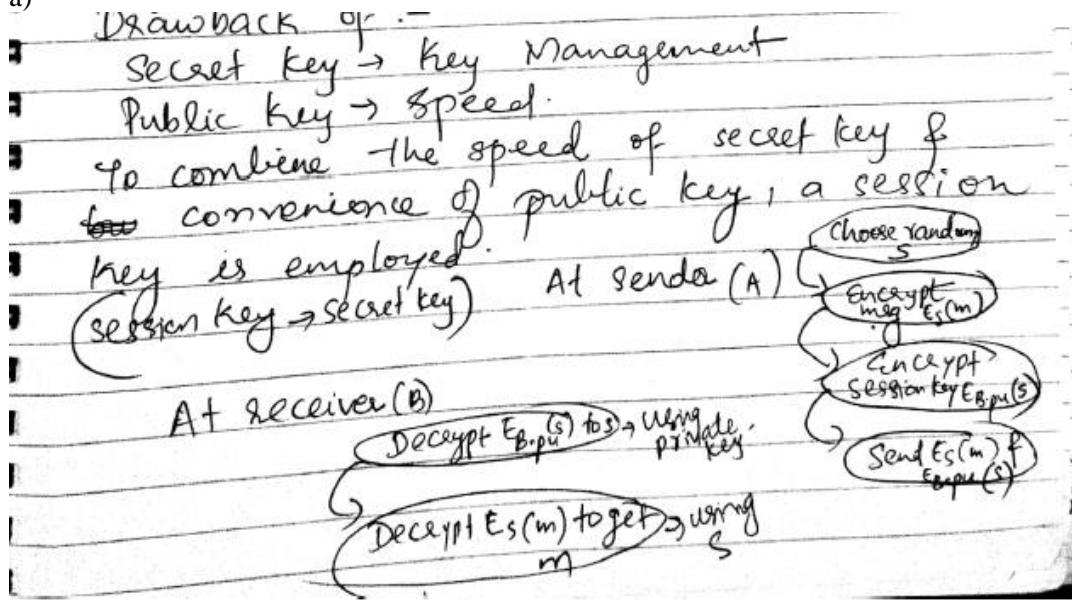 a)
Drawback of :-
Secret key → Key Management
Public key → Speed.
To combine the speed of secret key &
convenience of public key, a session
key is employed.
(session key → secret key)
At sender (A)
Choose random
S
Encrypt
msg Es(m)
Encrypt
session key EB.pu(s)
Send Es(m) &
EB.pu(s)
At receiver (B)
Decrypt EB.pu(s) to s → using
private
key
Decrypt Es(m) to get → using
m S